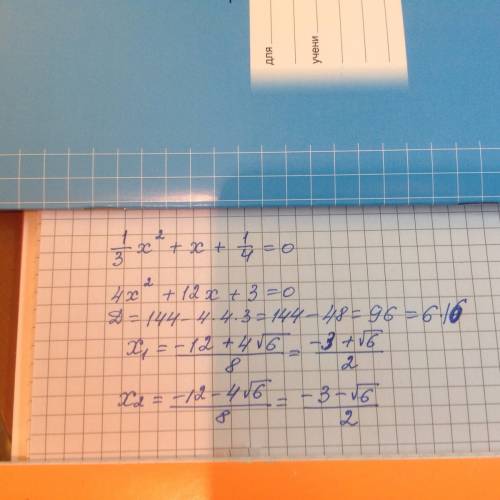 для
учени
1/3 x² + x + 1/4 = 0
4x² + 12x + 3 = 0
D = 144 - 4·4·3 = 144 - 48 = 96 = 6·16
x₁ = (-12 + 4√6)/8 = (-3 + √6)/2
x₂ = (-12 - 4√6)/8 = (-3 - √6)/2